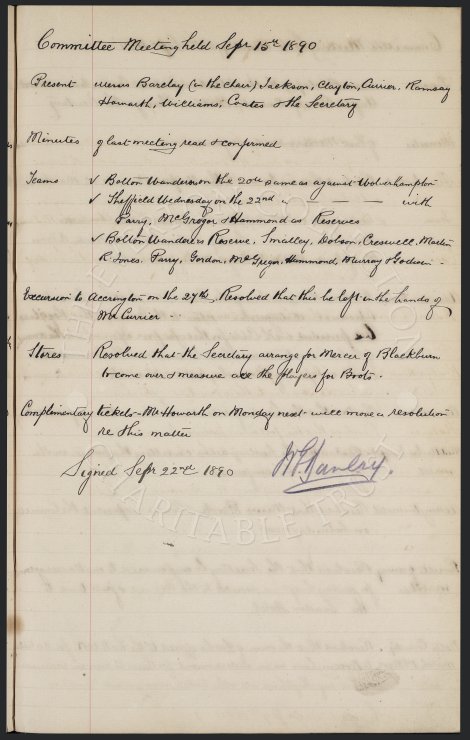 Committee Meeting held Sepr 15th 1890
Present were Messrs Barclay (in the chair) Jackson, Clayton, Currier, Ramsay
Howarth, Williams, Coates & the Secretary
Minutes of last meeting read & confirmed
Teams v Bolton Wanderers on the 20th same as against Wolverhampton
v Sheffield Wednesday on the 22nd " — — — with
Parry, McGregor & Hammond as Reserves
v Bolton Wanderers Reserve, Smalley, Dobson, Creswell, Martin
R. Jones. Parry, Gordon, McGregor, Hammond, Murray & Godwin
Excursion to Accrington on the 27th. Resolved that this be left in the hands of
Mr Currier
Stores Resolved that the Secretary arrange for Mercer of Blackburn
to come over & measure all the players for Boots.
Complimentary tickets - Mr Howarth on Monday next will move a resolution
re this matter
Signed Sepr 22nd 1890
THE CHARITABLE TRUST